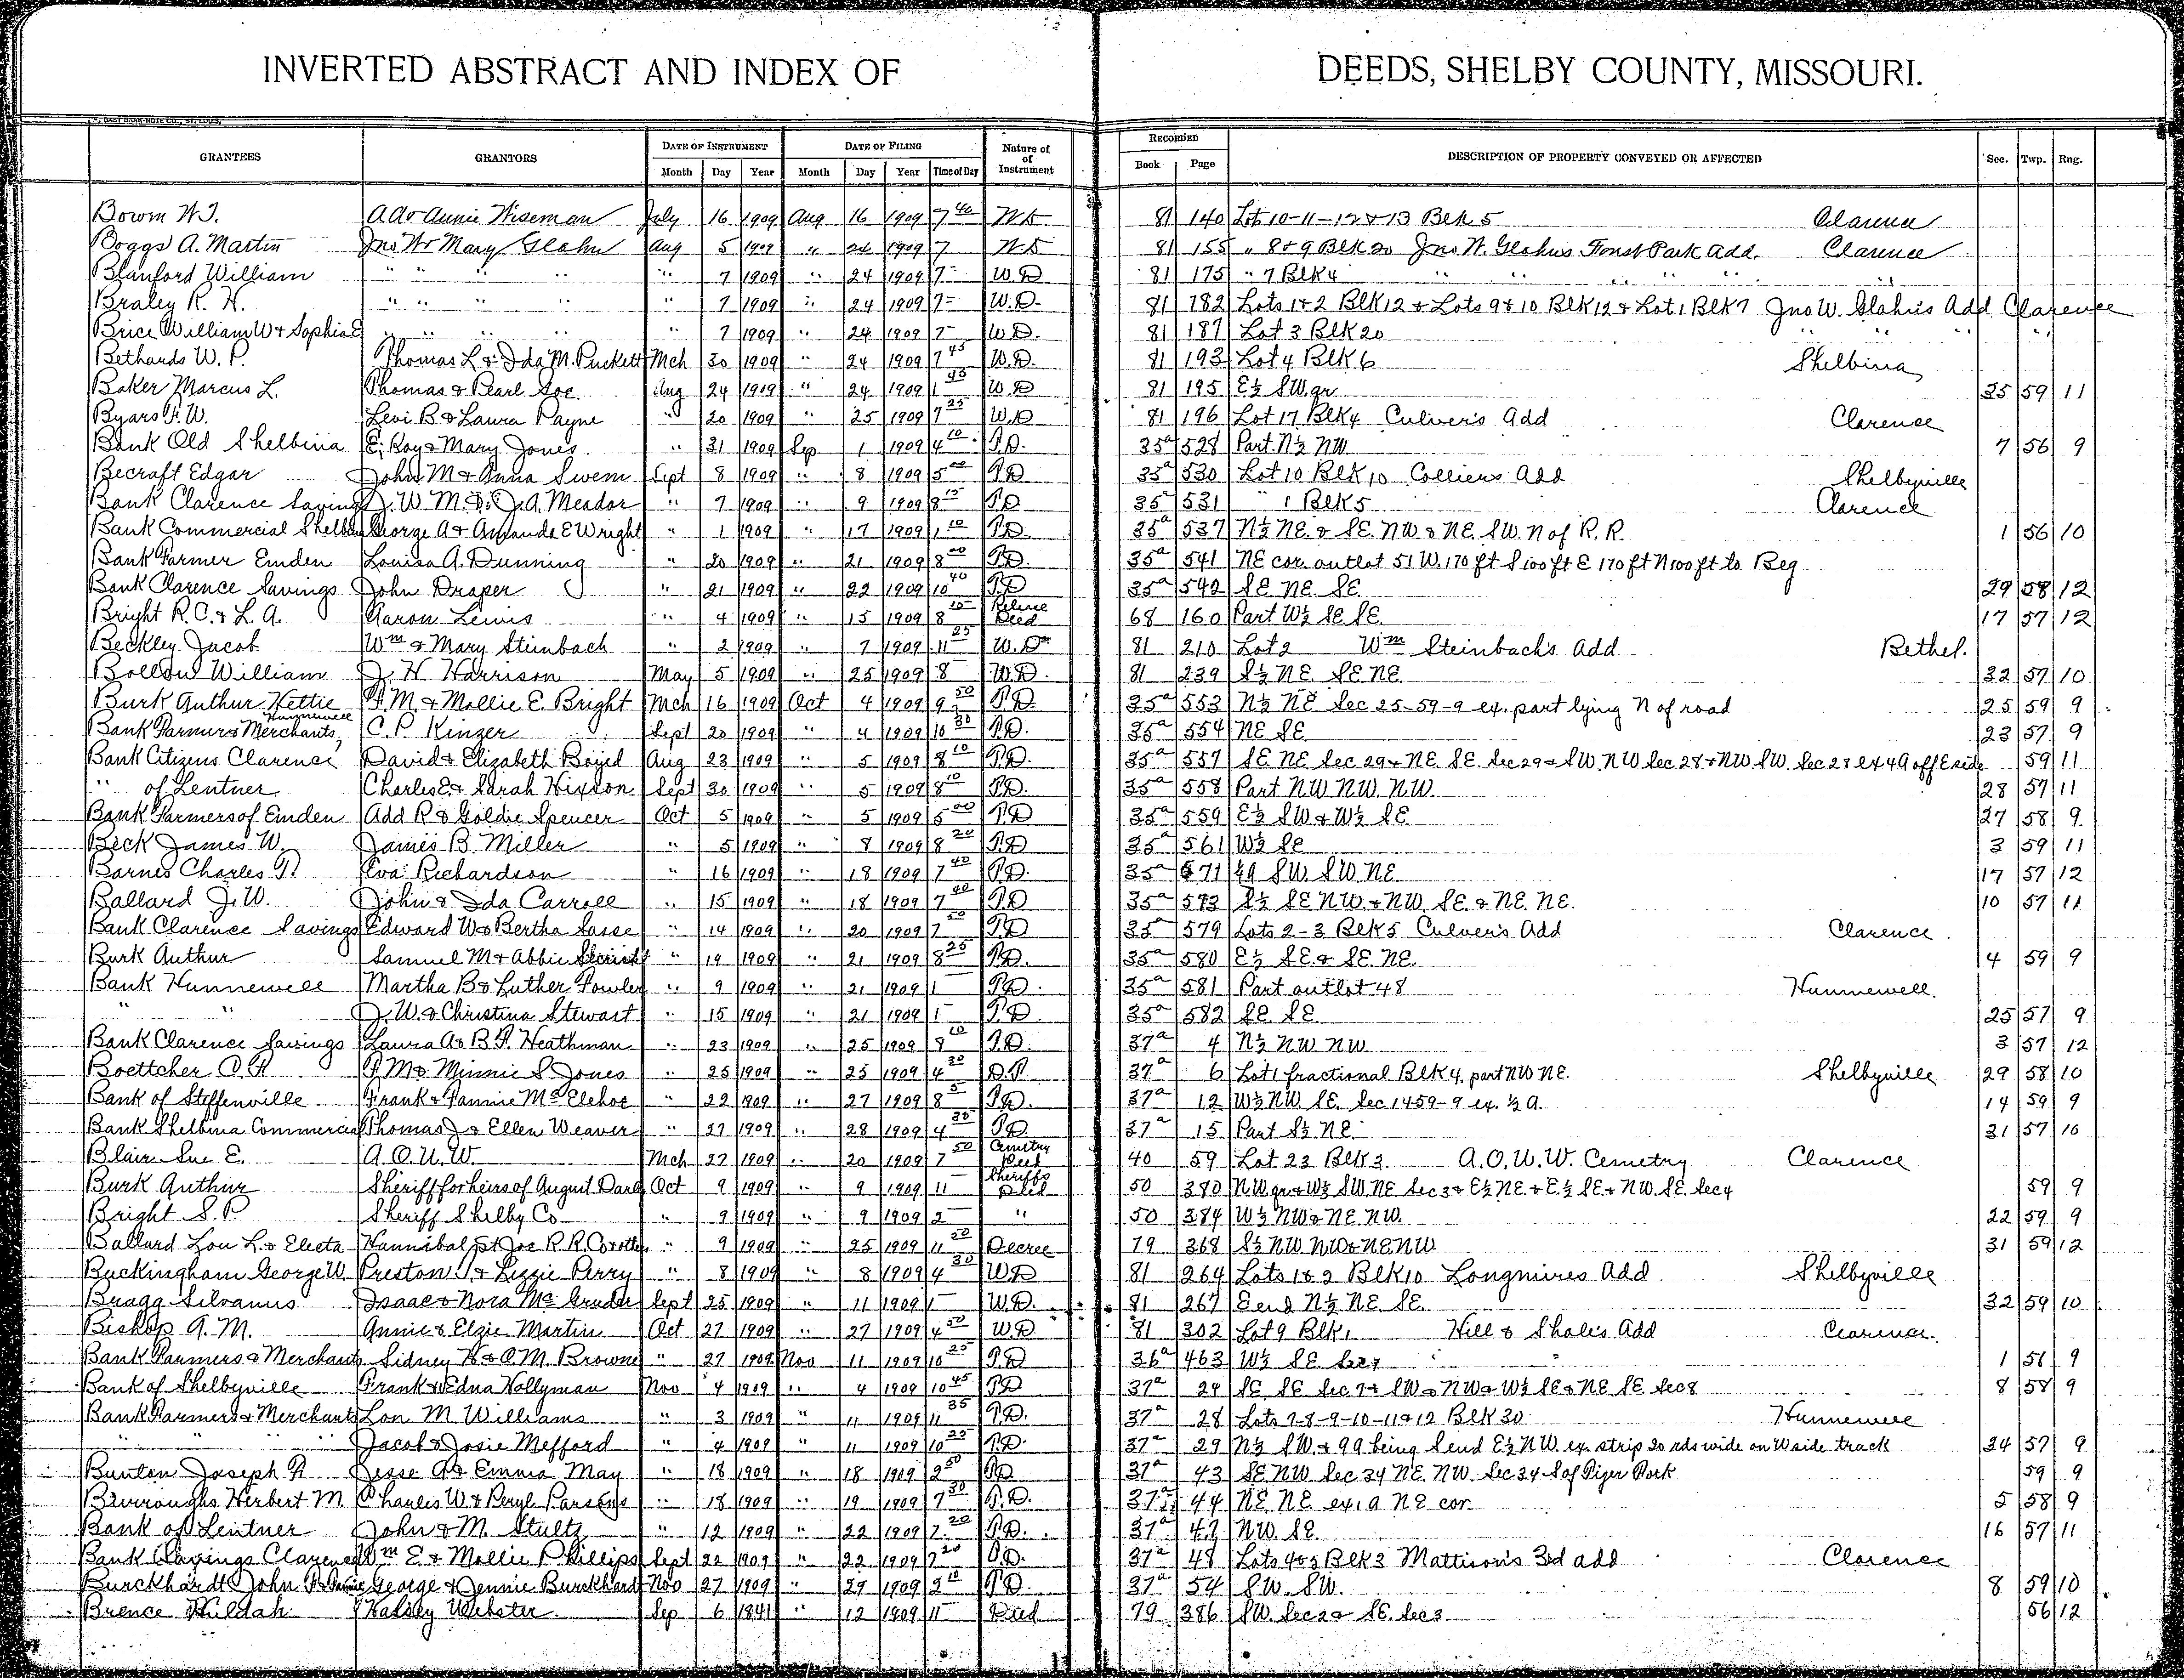 INVERTED ABSTRACT AND INDEX OF DEEDS, SHELBY COUNTY, MISSOURI.
GRANTEES GRANTORS DATE OF INSTRUMENT DATE OF FILING Nature of Instrument RECORDED DESCRIPTION OF PROPERTY CONVEYED OR AFFECTED Sec. Twp. Rng.
Month Day Year Month Day Year Time of Day Book Page
Bowm W.J. A A & Annie Wiseman July 16 1909 Aug 16 1909 7 40 W D 81 140 Lots 10-11-12 & 13 Blk 5 Clarence
Boggs A. Martin Jno W & Mary Glahn Aug 5 1909 " 24 1909 7 W D 81 155 " 8 & 9 Blk 20 Jno W. Glahns Forest Park Add. Clarence
Blanford William " " " " 7 1909 " 24 1909 7 - W.D 81 175 " 7 Blk 4 " " " "
Braley R. H. " " " " 7 1909 " 24 1909 7 - W.D. 81 182 Lots 1 & 2 Blk 12 & Lots 9 & 10 Blk 12 & Lot 1 Blk 7 Jno W. Glahn's Add Clarence
Brice William W & Sophia E " " " " 7 1909 " 24 1909 7 - W D. 81 187 Lot 3 Blk 20 " " "
Bethards W. P. Thomas L & Ida M. Puckett Mch 30 1909 " 24 1909 7 45 W.D. 81 193 Lot 4 Blk 6 Shelbina
Baker Marcus L. Thomas & Pearl Aug 24 1909 " 24 1909 1 45 W D 81 195 E½ SW qr 35 59 11
Byars F. W. Levi B & Laura Payne " 20 1909 " 25 1909 7 25 W.D 81 196 Lot 17 Blk 4 Culver's Add Clarence
Bank Old Shelbina E. Roy & Mary Jones " 31 1909 Sep 1 1909 4 10 T.D. 35a 528 Part N½ NW 7 56 9
Becraft Edgar John M & Anna Swem Sept 8 1909 " 8 1909 5 00 T D 35a 530 Lot 10 Blk 10 Colliers Add Shelbyville
Bank Clarence Savings J. W. M. & J. A. Meador " 7 1909 " 9 1909 8 15 T D 35a 531 " 1 Blk 5 Clarence
Bank Commercial Shelbina George A & Amanda E Wright " 1 1909 " 17 1909 1 10 T D. 35a 537 N½ NE. & SE. NW & NE. SW. N of R. R. 1 56 10
Bank Farmer Emden Louisa A. Dunning " 20 1909 " 21 1909 8 00 T D. 35a 541 NE cor. outlot 51 W. 170 ft S 100 ft E 170 ft N 100 ft to Beg
Bank Clarence Savings John Draper " 21 1909 " 22 1909 10 40 T D 35a 542 SE NE SE 29 58 12
Bright R. C. & L. A. Aaron Lewis " 4 1909 " 15 1909 8 Deed 68 160 Part W½ SE SE. 17 57 12
Beckley Jacob Wm & Mary Steinbach " 2 1909 " 7 1909 11 25 W. D 81 210 Lot 2 Wm Steinbachs Add Bethel.
William J. H Harrison May 5 1909 " 25 1909 8 W.D. 81 239 S½ NE SE NE. 32 57 10
Burk Authur Hettie F. M. & Mollie E. Bright Mch 16 1909 Oct 4 1909 9 50 T D. 35a 553 N½ NE Sec 25-59-9 ex. part lying N of road 25 59 9
Bank Farmers & Merchants, Hunnewell C. P. Kinzer Sept 20 1909 " 4 1909 10 30 T D. 35a 554 NE SE 23 57 9
Bank Citizens Clarence David & Elizabeth Boyed Aug 23 1909 " 5 1909 8 10 T D. 35a 557 SE NE Sec 29 & NE SE. Sec 29 & SW. NW Sec 28 & NW SW. Sec 28 ex 4 A off E side 59 11
" of Lentner Charles E & Sarah Hixson Sept 30 1909 " 5 1909 8 10 T D. 35a 558 Part NW NW. NW. 28 57 11
Bank Farmers of Emden Add R & Goldie Spencer Oct 5 1909 " 5 1909 5 00 T D 35a 559 E½ SW & W½ SE 27 58 9
Beck James W. James B. Miller " 5 1909 " 7 1909 8 20 T D 35a 561 W½ SE 3 59 11
Barnes Charles Eva Richardson " 16 1909 " 18 1909 7 40 T D. 35a 571 SW. SW. NE. 17 57 12
Ballard J. W. John & Ida Carroll " 15 1909 " 18 1909 7 40 T D 35a 573 S½ SE NW. & NW. SE. & NE. NE. 10 57 11
Bank Clarence Savings Edward W & Bertha Sasse " 14 1909 " 20 1909 7 50 T D 35a 579 Lots 2-3 Blk 5 Culver's Add Clarence
Burk Authur Samuel M & Abbie " 19 1909 " 21 1909 8 25 T D. 35a 580 E½ SE. & SE. NE. 4 59 9
Bank Hunnewell Martha B & Luther Fowler " 9 1909 " 21 1909 1 T D. 35a 581 Part outlot 48 Hunnewell.
" " J. W & Christina Stewart " 15 1909 " 21 1909 1 - T D. 35a 582 SE. SE. 25 57 9
Bank Clarence Savings Laura A & B. F. Heathman " 23 1909 " 25 1909 8 10 T.D. 37a 4 N½ NW NW 3 57 12
Boettcher C. F. M & Minnie S. Jones " 25 1909 " 25 1909 4 30 37a 6 Lot 1 fractional Blk 4, part NW NE. Shelbyville 29 58 10
Bank of Steffenville Frank & Fannie McElehoe " 22 1909 " 27 1909 8 5 T D. 37a 12 W½ NW. SE. Sec 14 59-9 ex. ½ A. 14 59 9
Bank Shelbina Commercial Thomas J & Ellen Weaver " 27 1909 " 28 1909 4 35 T D 37a 15 Part S½ NE. 31 57 10
Blair Sue E. A. O. U. W. Mch 27 1909 " 20 1909 7 50 Cemetry Deed 40 59 Lot 23 Blk 3 A.O.U.W. Cemetry Clarence
Burk Authur Sheriff for heirs of August Oct 9 1909 " 9 1909 11 Sheriffs Deed 50 380 NW qr & W½ SW. NE Sec 3 & E½ NE. & E.½ SE & NW. SE. Sec 4 59 9
Bright S. P. Sheriff Shelby Co " 9 1909 " 9 1909 2 " 50 384 W½ NW & NE NW. 22 59 9
Ballard Lou L. & Electa Hannibal St Joe R. R. Co " 9 1909 " 25 1909 11 50 Decree 79 368 S½ NW NW & NE NW 31 59 12
Buckingham George W. Preston J. & Lizzie Perry " 8 1909 " 8 1909 4 30 W D 81 264 Lots 1 & 2 Blk 10 Longmires Add Shelbyville
Bragg Silvanus Isaac & Nora McGruder Sept 25 1909 " 11 1909 1 W. D. 81 267 E end N½ NE. SE. 32 59 10
Bishop A. M. Annie & Elzie Martin Oct 27 1909 " 27 1909 4 50 W D 81 302 Lot 9 Blk 1 Hill & Shales Add Clarence.
Bank Farmers & Merchants Sidney H & O. M. Browne " 27 1909 Nov 11 1909 10 25 T D 36a 463 W½ SE 1 56 9
Bank of Shelbyville Frank & Edna Hollyman Nov 4 1909 " 4 1909 10 45 T D 37a 24 SE SE Sec 7 & SW & NW & W½ SE & NE SE Sec 8 8 58 9
Bank Farmers & Merchants Lon M Williams " 3 1909 " 11 1909 11 35 T D. 37a 28 Lots 7-8-9-10-11 & 12 Blk 30 Hunnewell
" " " Jacob & Josie Mefford " 4 1909 " 11 1909 10 25 T D. 37a 29 N½ SW. & 9 A being S end E½ NW ex. strip 20 rds wide on W side track 24 57 9
Bunton Joseph Jesse A & Emma May " 18 1909 " 18 1909 2 50 T D 37a 43 SE NW Sec 34 NE. NW. Sec 34 S of 59 9
Burroughs Herbert M. Charles W & Peryl Parsons " 18 1909 " 19 1909 7 30 T. D. 37a 44 NE NE ex 1 A NE cor 5 58 9
Bank of Lentner John & M. Stultz " 12 1909 " 22 1909 7 20 T D. 37a 47 NW. SE. 16 57 11
Bank Savings Clarence Wm E & Mollie Phillips Sept 22 1909 " 22 1909 7 20 T D. 37a 48 Lots 4 & 5 Blk 3 Mattison's 3rd add Clarence
Burckhardt John George & Jennie Burckhardt Nov 27 1909 " 29 1909 2 10 T D 37a 54 SW. SW. 8 59 10
Brence Huldah Halsey Webster Sep 6 1841 " 12 1909 11 Deed 79 386 SW. Sec 2 & SE. Sec 3 56 12